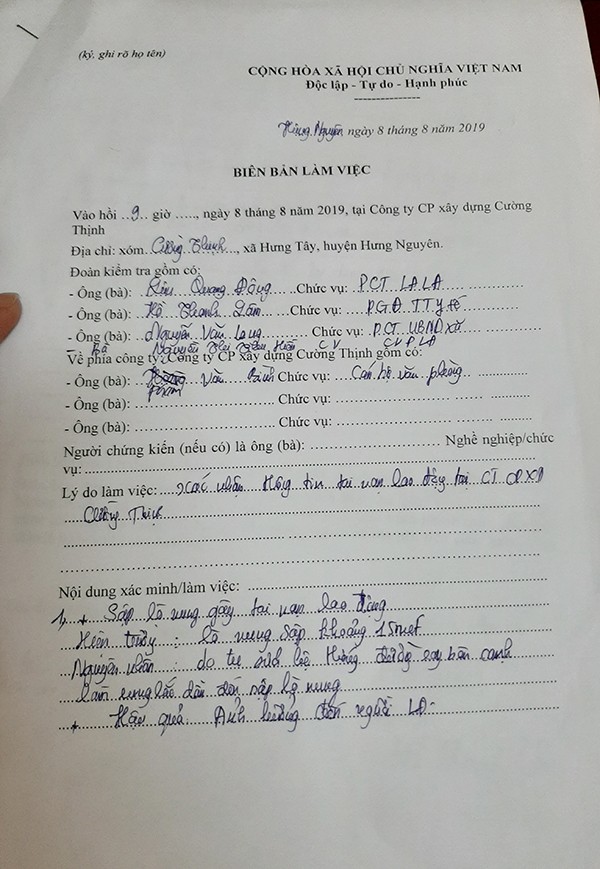 (ký, ghi rõ họ tên)
CỘNG HÒA XÃ HỘI CHỦ NGHĨA VIỆT NAM
Độc lập - Tự do - Hạnh phúc
Hưng Nguyên ngày 8 tháng 8 năm 2019
BIÊN BẢN LÀM VIỆC
Vào hồi ..9.. giờ ....., ngày 8 tháng 8 năm 2019, tại Công ty CP xây dựng Cường
Thịnh
Địa chỉ: xóm Cường Thịnh, xã Hưng Tây, huyện Hưng Nguyên.
Đoàn kiểm tra gồm có:
- Ông (bà): Quang Đông Chức vụ: PCT
- Ông (bà): Hồ Thanh Chức vụ: PGĐ TTYTế
- Ông (bà): Nguyễn Văn Long Chức vụ: PCT UBND xã
- Bà Nguyễn Thị CV
Về phía công ty: Công ty CP xây dựng Cường Thịnh gồm có:
- Ông (bà): Phạm Văn Bình Chức vụ: Cán bộ văn phòng
- Ông (bà): Chức vụ:
- Ông (bà): Chức vụ:
Người chứng kiến (nếu có) là ông (bà): Nghề nghiệp/chức
vụ:
Lý do làm việc: xác nhận thông tin tai nạn lao động tại CT CPXD
Cường Thịnh
Nội dung xác minh/làm việc:
1, + Sập lò nung gây tai nạn lao động
Hiện trường: lò nung sập khoảng 15 mét
Nguyên nhân: do bên cạnh
làm dẫn đến sập lò nung
+ Hậu quả: Ảnh hưởng đến người LĐ